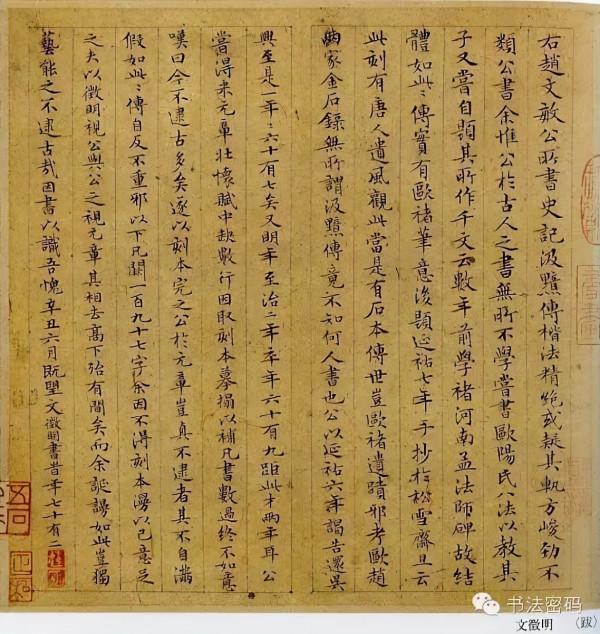 右趙文敏公所書史記汲黯傳楷法精絶或疑其軌方峻勁不
類公書余惟公於古人之書無所不學嘗書歐陽氏八法以教其
子又嘗自題其所作千文云數年前學褚河南孟法師碑故結
體如此此傳實有歐褚筆意後題延祐七年手抄於松雪齋且云
此刻有唐人遺風觀此當是有石本傳世豈歐褚遺蹟邪考歐趙
兩家金石錄無所謂汲黯傳竟不知何人書也公以延祐六年謁告還吳
興至是一年年六十有七矣又明年至治二年卒年六十有九距此才兩年耳公
嘗得米元章壯懷賦中缺數行因取刻本摹搨以補凡書數過終不如意
嘆曰今不逮古多矣遂以刻本完之公於元章豈真不逮者其不自滿
假如此此傳自反不重邪以下凡闕一百九十七字余因不得刻本漫以己意足
之夫以徵明視公與公之視元章其相去高下殆有間矣而余誕謾如此豈獨
藝能之不逮古哉因書以識吾愧辛丑六月既望文徵明書昔年七十有二
书法密码
文徵明 （跋）